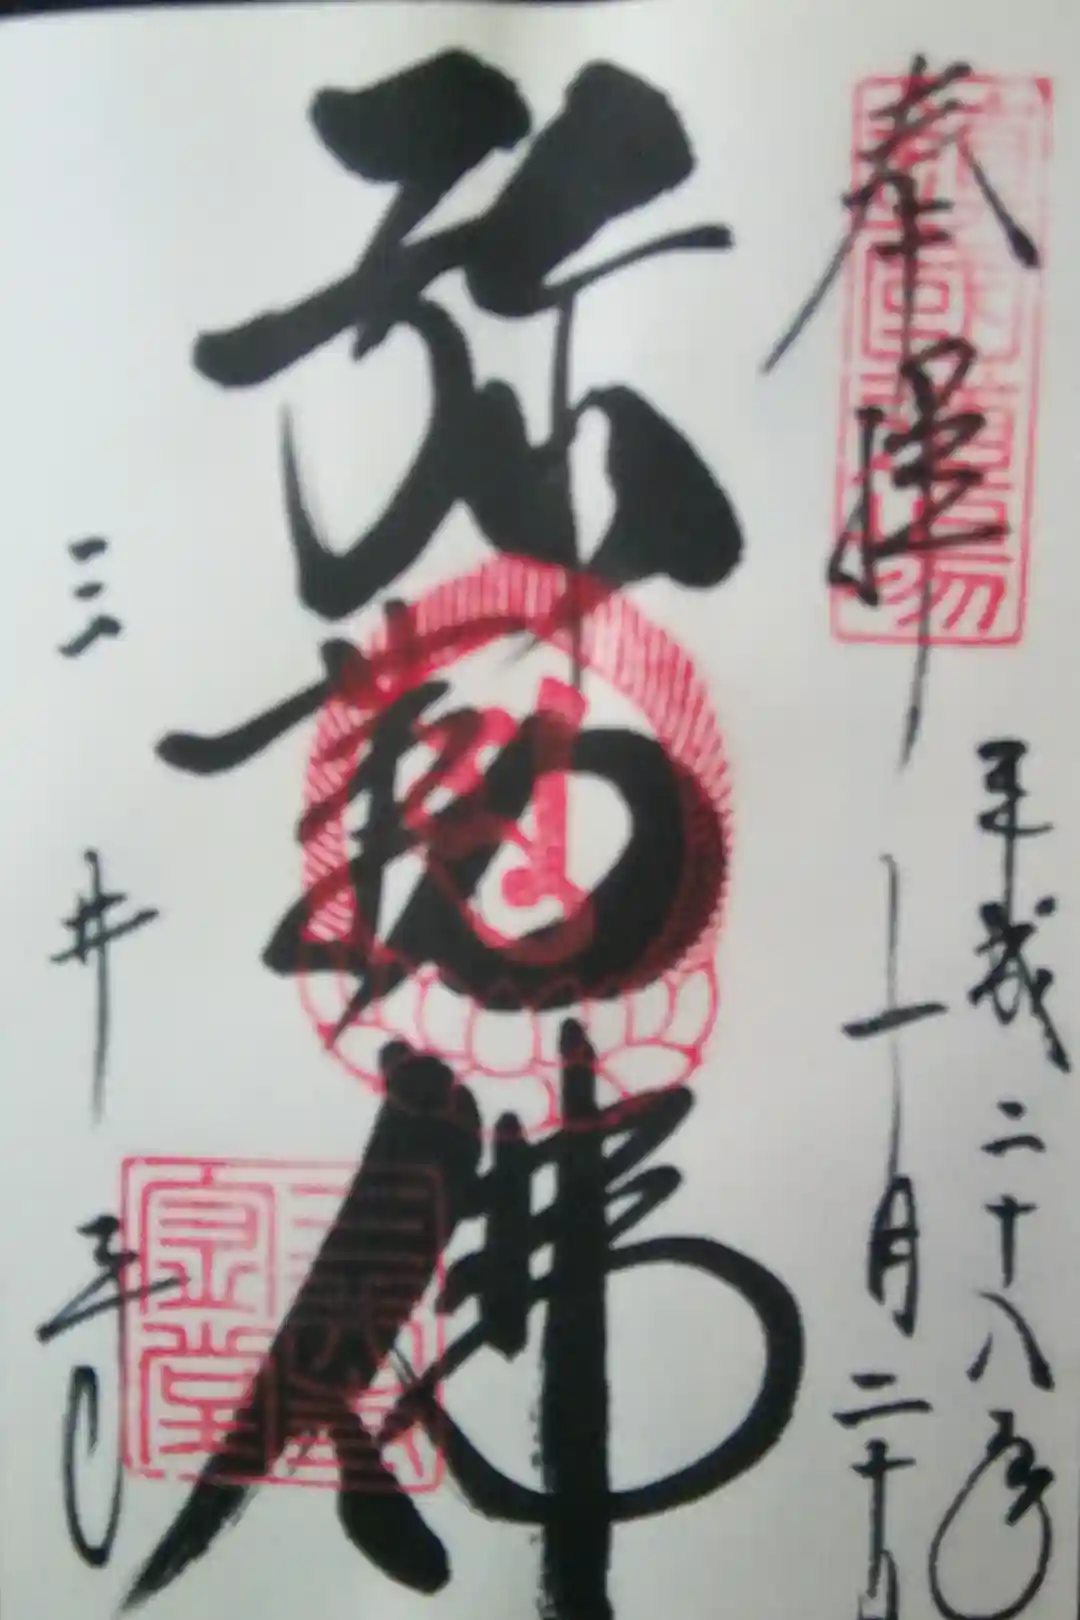 奉拝
平成二十八年
十月二十日
弥勒佛
三井寺